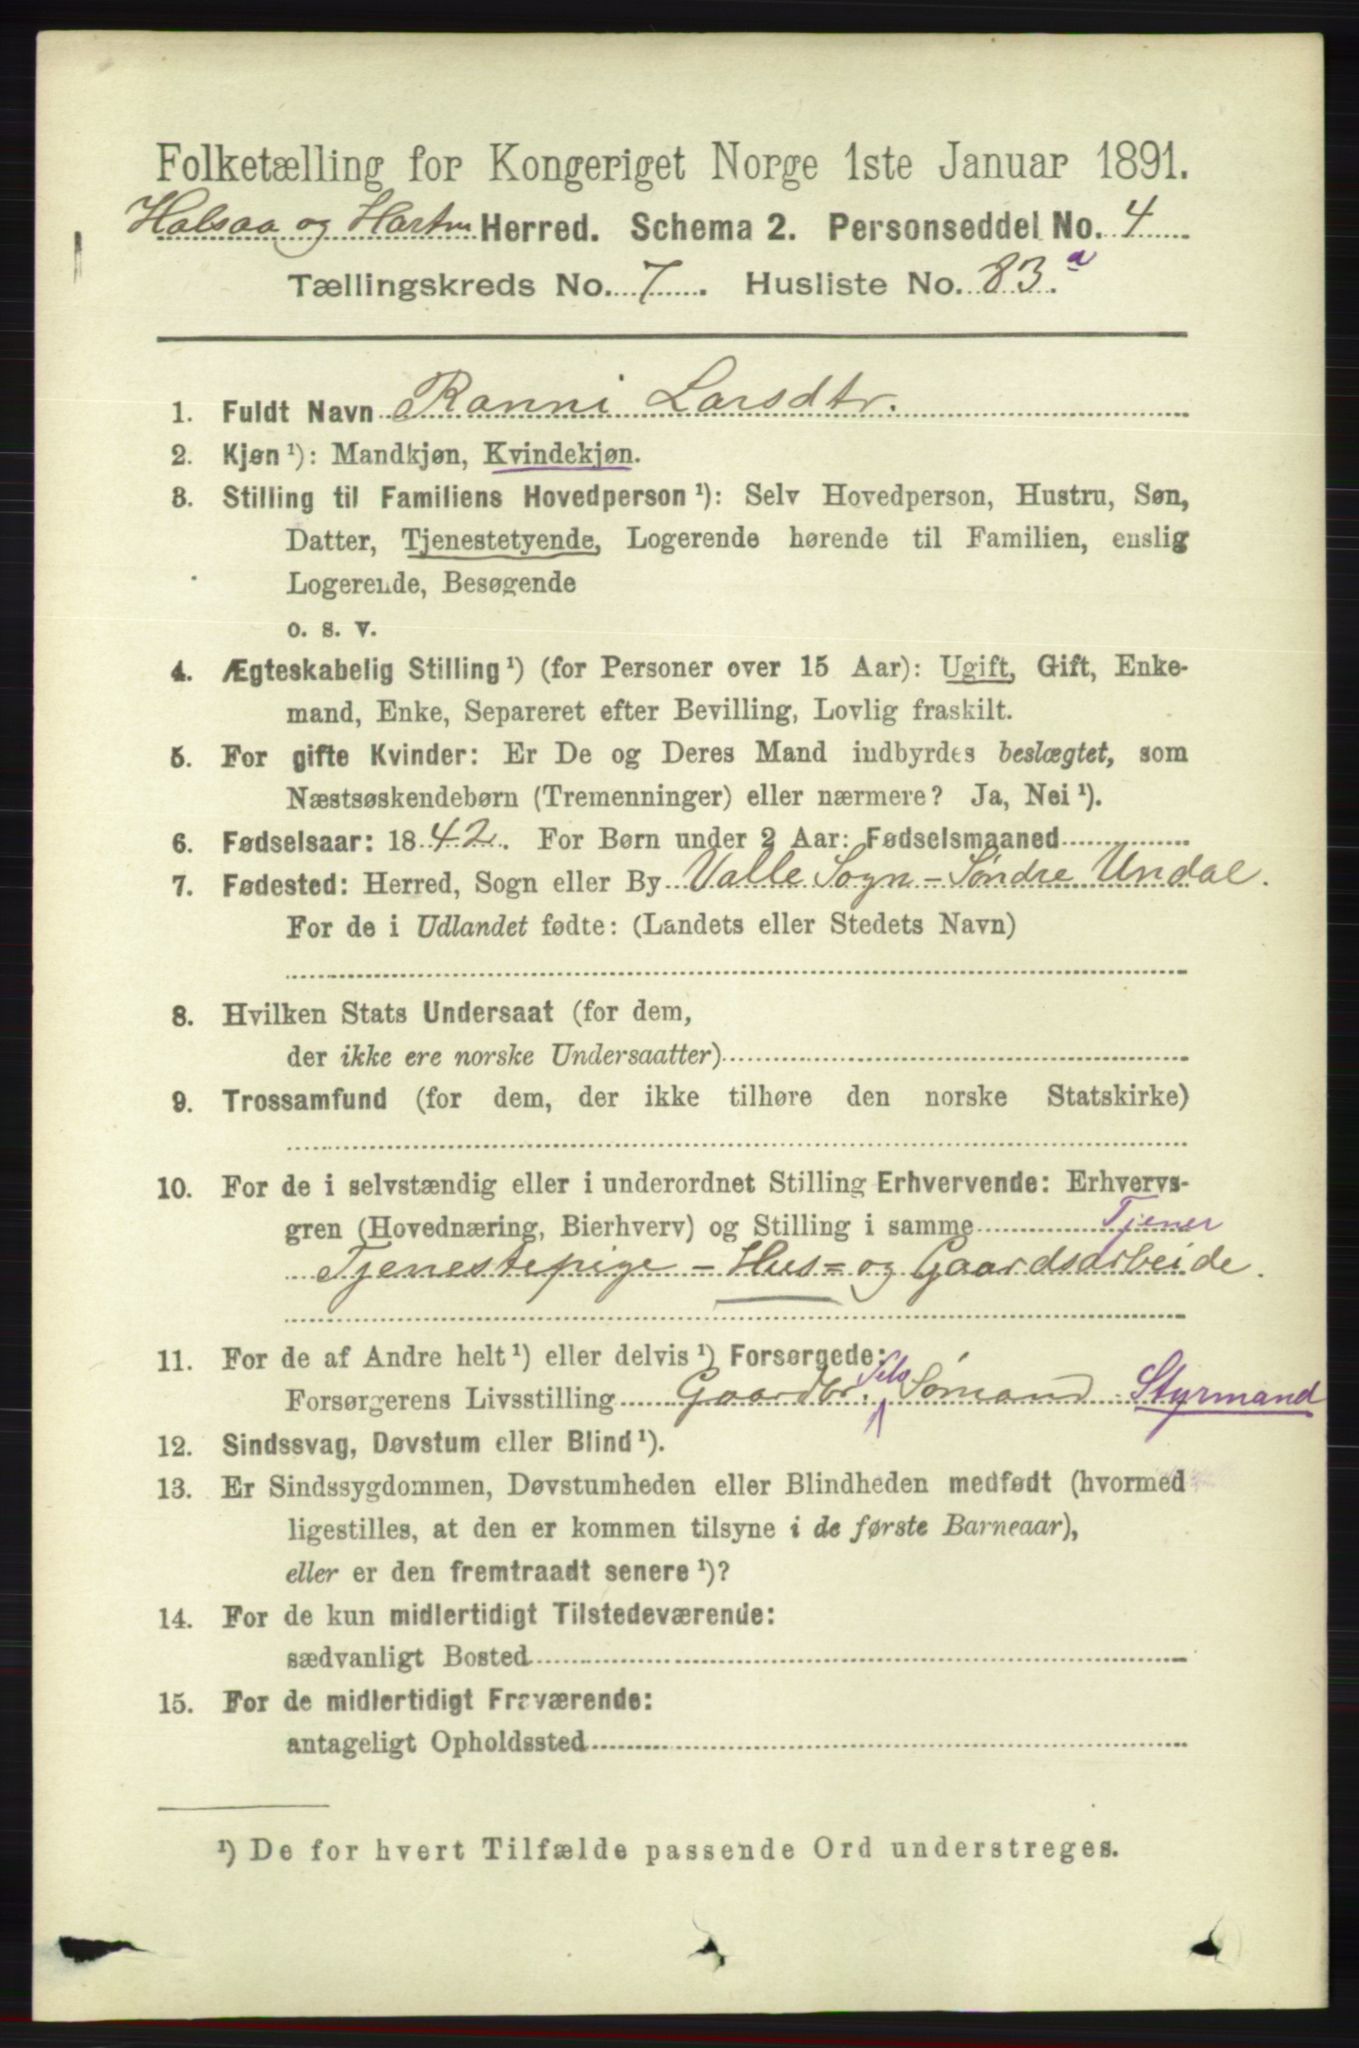 Folketælling for Kongeriget Norge 1ste Januar 1891.
Halsaa og Hartm Herred. Schema 2. Personseddel No. 4
Tællingskreds No. 7. Husliste No. 83.a
1. Fuldt Navn Ranni Larsdtr.
2. Kjøn ¹): Mandkjøn, Kvindekjøn.
3. Stilling til Familiens Hovedperson ¹): Selv Hovedperson, Hustru, Søn,
Datter, Tjenestetyende, Logerende hørende til Familien, enslig
Logerende, Besøgende
o. s. v.
4. Ægteskabelig Stilling ¹) (for Personer over 15 Aar): Ugift, Gift, Enke-
mand, Enke, Separeret efter Bevilling, Lovlig fraskilt.
5. For gifte Kvinder: Er De og Deres Mand indbyrdes beslægtet, som
Næstsøskendebørn (Tremenninger) eller nærmere? Ja, Nei ¹).
6. Fødselsaar: 1842. For Børn under 2 Aar: Fødselsmaaned
7. Fødested: Herred, Sogn eller By Valle Sogn - Søndre Undal.
For de i Udlandet fødte: (Landets eller Stedets Navn)
8. Hvilken Stats Undersaat (for dem,
der ikke ere norske Undersaatter)
9. Trossamfund (for dem, der ikke tilhøre den norske Statskirke)
10. For de i selvstændig eller i underordnet Stilling Erhvervende: Erhvervs-
gren (Hovednæring, Bierhverv) og Stilling i samme Tjener
Tjenestepige - Hus= og Gaardsarbeide.
11. For de af Andre helt ¹) eller delvis ¹) Forsørgede:
Forsørgerens Livsstilling Gaardbr. Selv Sømand Styrmand
12. Sindssvag, Døvstum eller Blind ¹).
13. Er Sindssygdommen, Døvstumheden eller Blindheden medfødt (hvormed
ligestilles, at den er kommen tilsyne i de første Barneaar),
eller er den fremtraadt senere ¹)?
14. For de kun midlertidigt Tilstedeværende:
sædvanligt Bosted
15. For de midlertidigt Fraværende:
antageligt Opholdssted
¹) De for hvert Tilfælde passende Ord understreges.